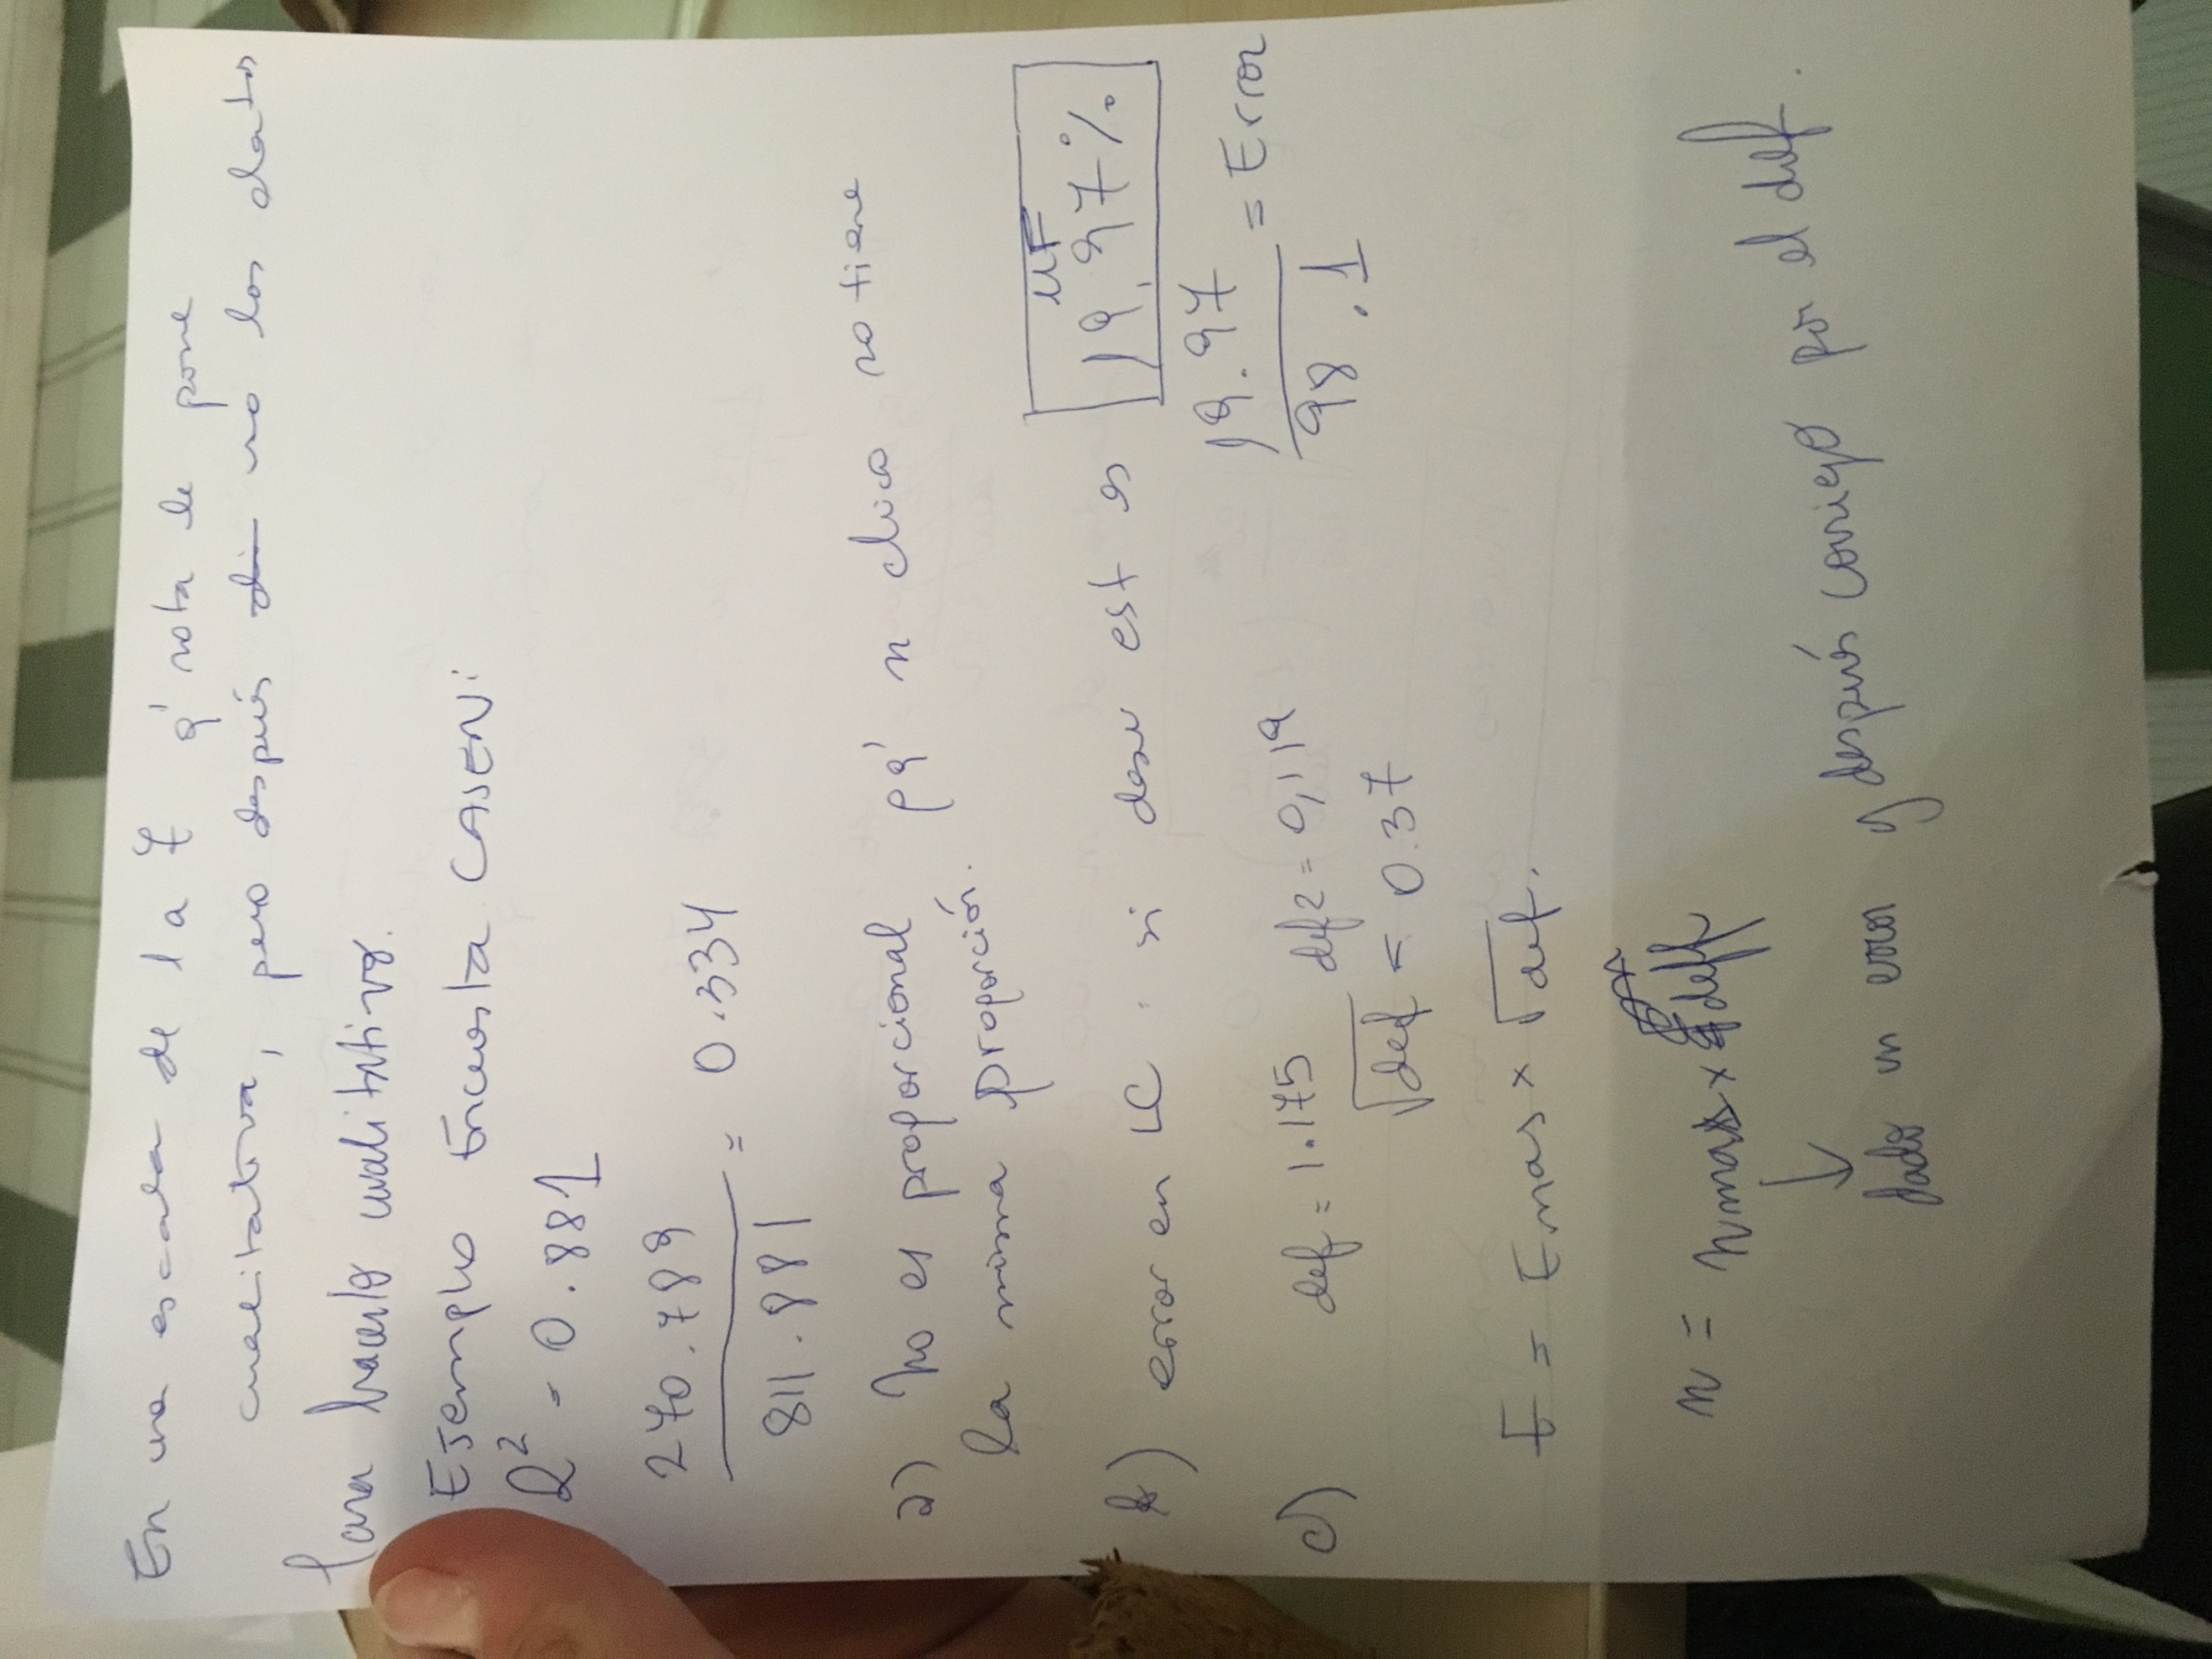 En una escala de 1 a 7 q' nota le pone
cualitativa, pero después di uso los datos
para hacerlo cualitativo.
Ejemplo Encuesta CASEN:
R² = 0.881
270.789
= 0.334
811.881
a) No es proporcional pq' n chico no tiene
la misma proporción.
b) error en LC. si dam est es
MF
19,97%
19.97
= Error
98.1
c) def = 1.175 def2 = 0,119
√def = 0.37
E = E mas x √def.
n = nmas x deff
↓
dado un error y después corrijo por el def.